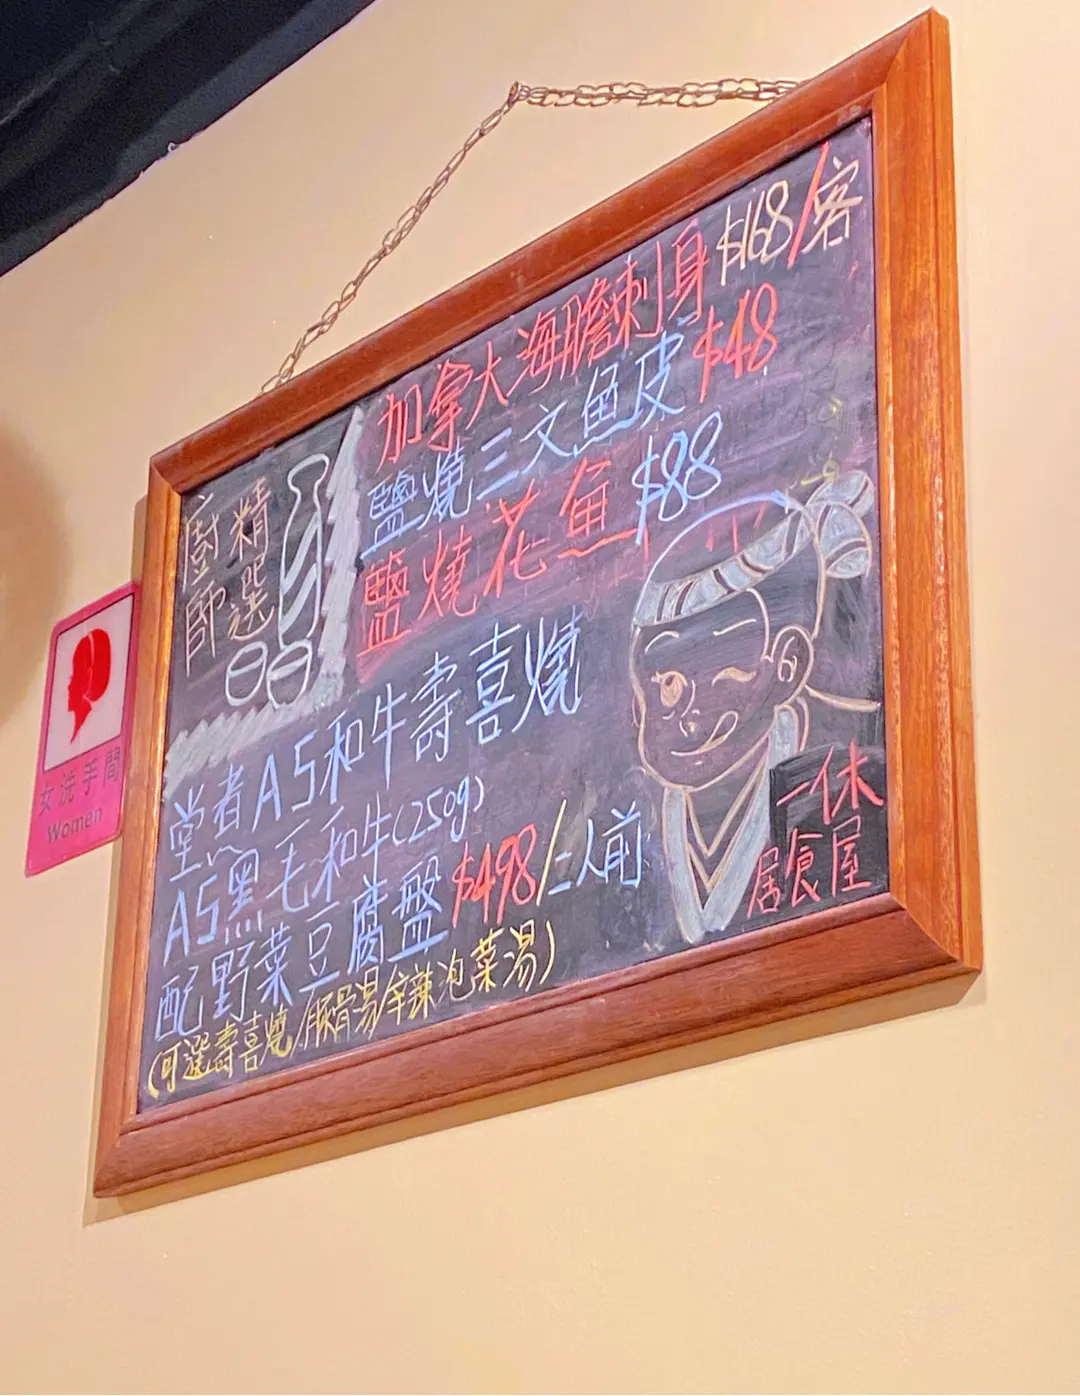 廚師
精選
加拿大海膽刺身$168/客
鹽燒三文魚皮$48
鹽燒花魚$88
堂煮A5和牛壽喜燒
A5黑毛和牛(250g)
配野菜豆腐盤$498/二人前
(可選壽喜燒/豚骨湯/辛辣泡菜湯)
一休
居食屋
女洗手間
Women